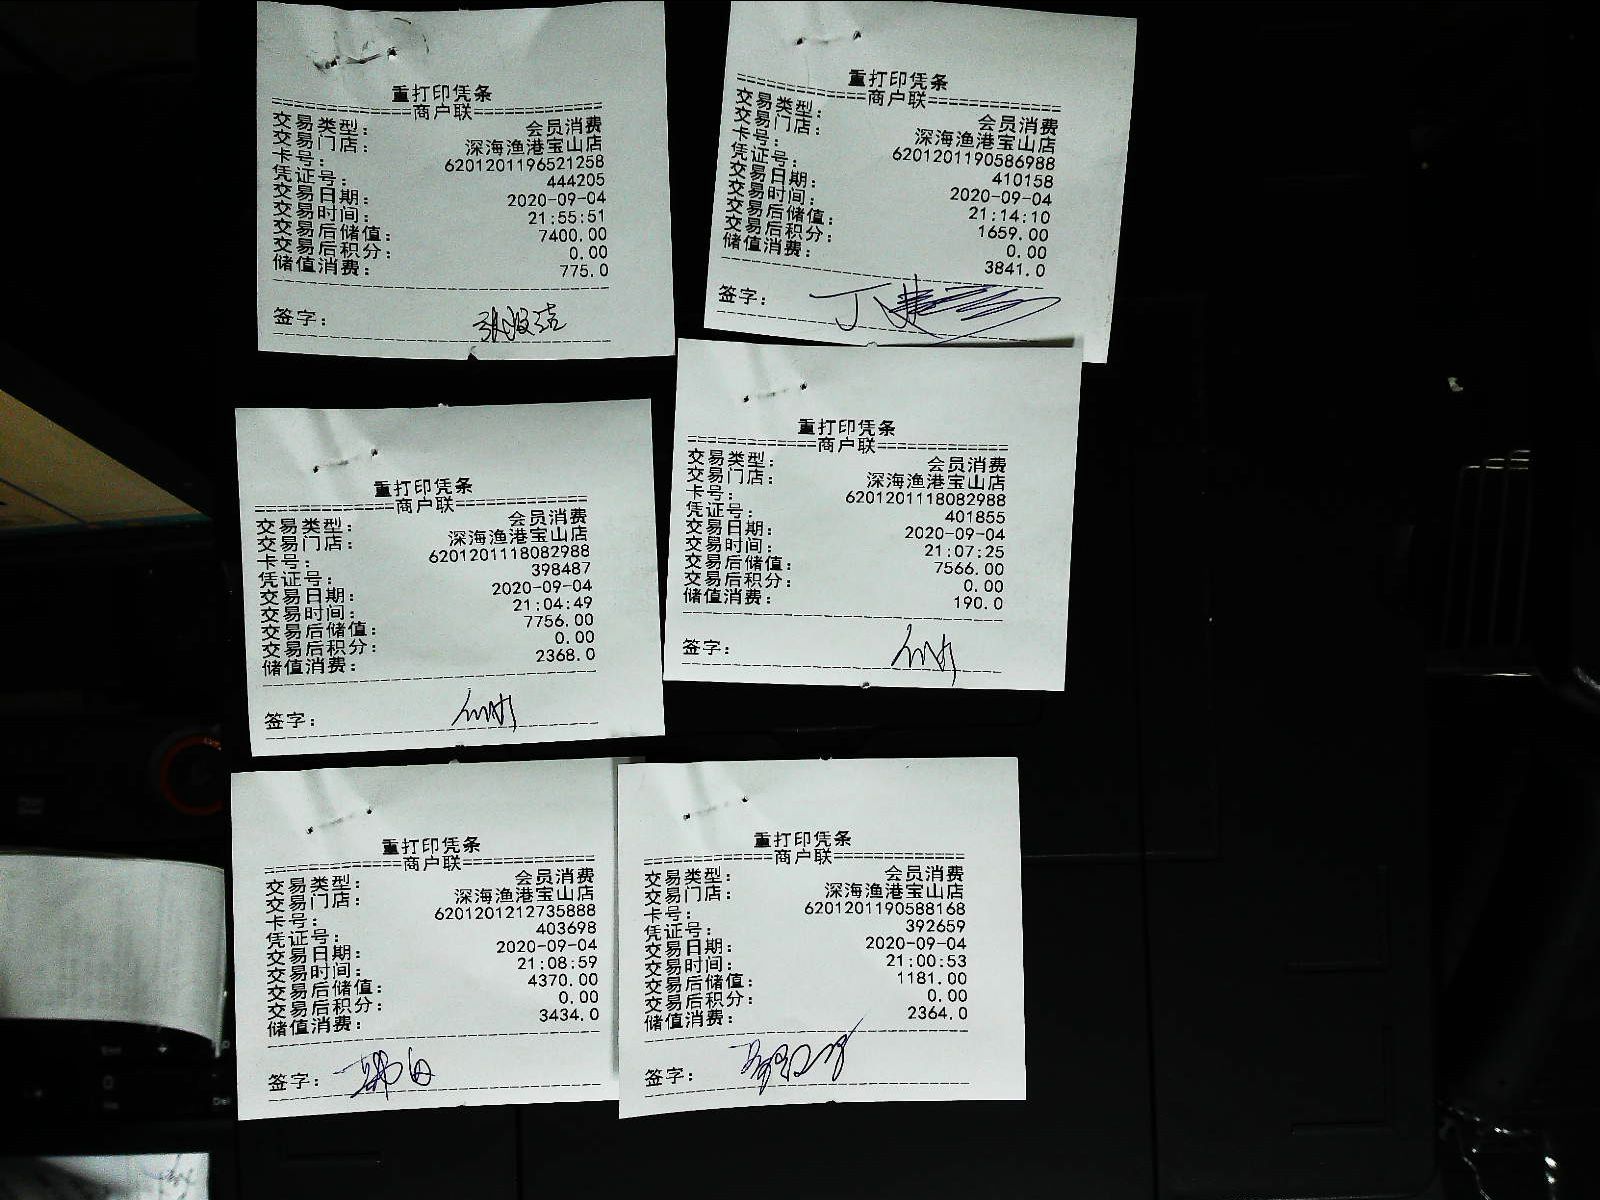 重打印凭条
============商户联============
交易类型： 会员消费
交易门店： 深海渔港宝山店
卡号： 6201201196521258
凭证号： 444205
交易日期： 2020-09-04
交易时间： 21:55:51
交易后储值： 7400.00
交易后积分： 0.00
储值消费： 775.0
签字：
重打印凭条
============商户联============
交易类型： 会员消费
交易门店： 深海渔港宝山店
卡号： 6201201190586988
凭证号： 410158
交易日期： 2020-09-04
交易时间： 21:14:10
交易后储值： 1659.00
交易后积分： 0.00
储值消费： 3841.0
签字：
重打印凭条
============商户联============
交易类型： 会员消费
交易门店： 深海渔港宝山店
卡号： 6201201118082988
凭证号： 398487
交易日期： 2020-09-04
交易时间： 21:04:49
交易后储值： 7756.00
交易后积分： 0.00
储值消费： 2368.0
签字：
重打印凭条
============商户联============
交易类型： 会员消费
交易门店： 深海渔港宝山店
卡号： 6201201118082988
凭证号： 401855
交易日期： 2020-09-04
交易时间： 21:07:25
交易后储值： 7566.00
交易后积分： 0.00
储值消费： 190.0
签字：
重打印凭条
============商户联============
交易类型： 会员消费
交易门店： 深海渔港宝山店
卡号： 6201201212735888
凭证号： 403698
交易日期： 2020-09-04
交易时间： 21:08:59
交易后储值： 4370.00
交易后积分： 0.00
储值消费： 3434.0
签字：
重打印凭条
============商户联============
交易类型： 会员消费
交易门店： 深海渔港宝山店
卡号： 6201201190588168
凭证号： 392659
交易日期： 2020-09-04
交易时间： 21:00:53
交易后储值： 1181.00
交易后积分： 0.00
储值消费： 2364.0
签字：